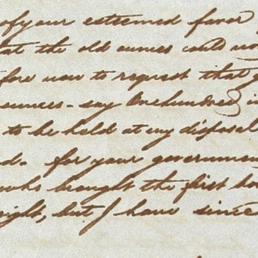 of your esteemed favor
at the old ounces could
fore now to request that
ounces - say One hundred
to be held at my disposal
do. for your government
who brought the first
ight, but I have since